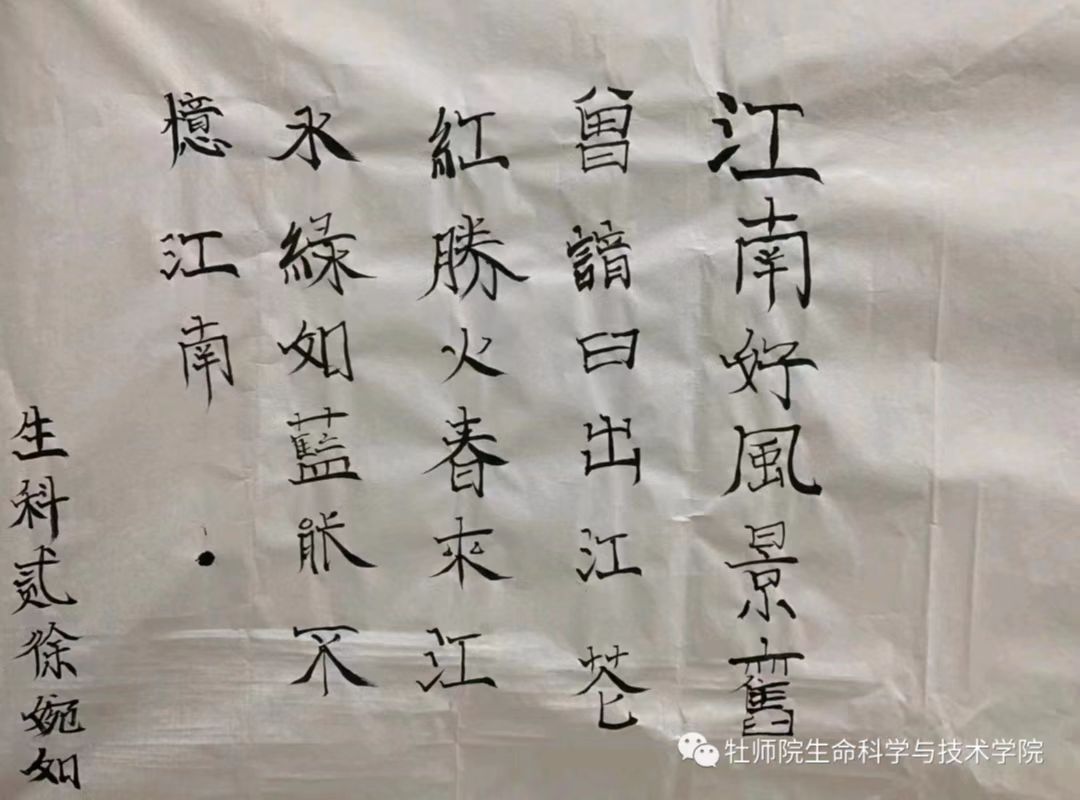 江南好風景舊
曾諳日出江花
紅勝火春來江
水綠如藍能不
憶江南
生科贰徐婉如
牡师院生命科学与技术学院